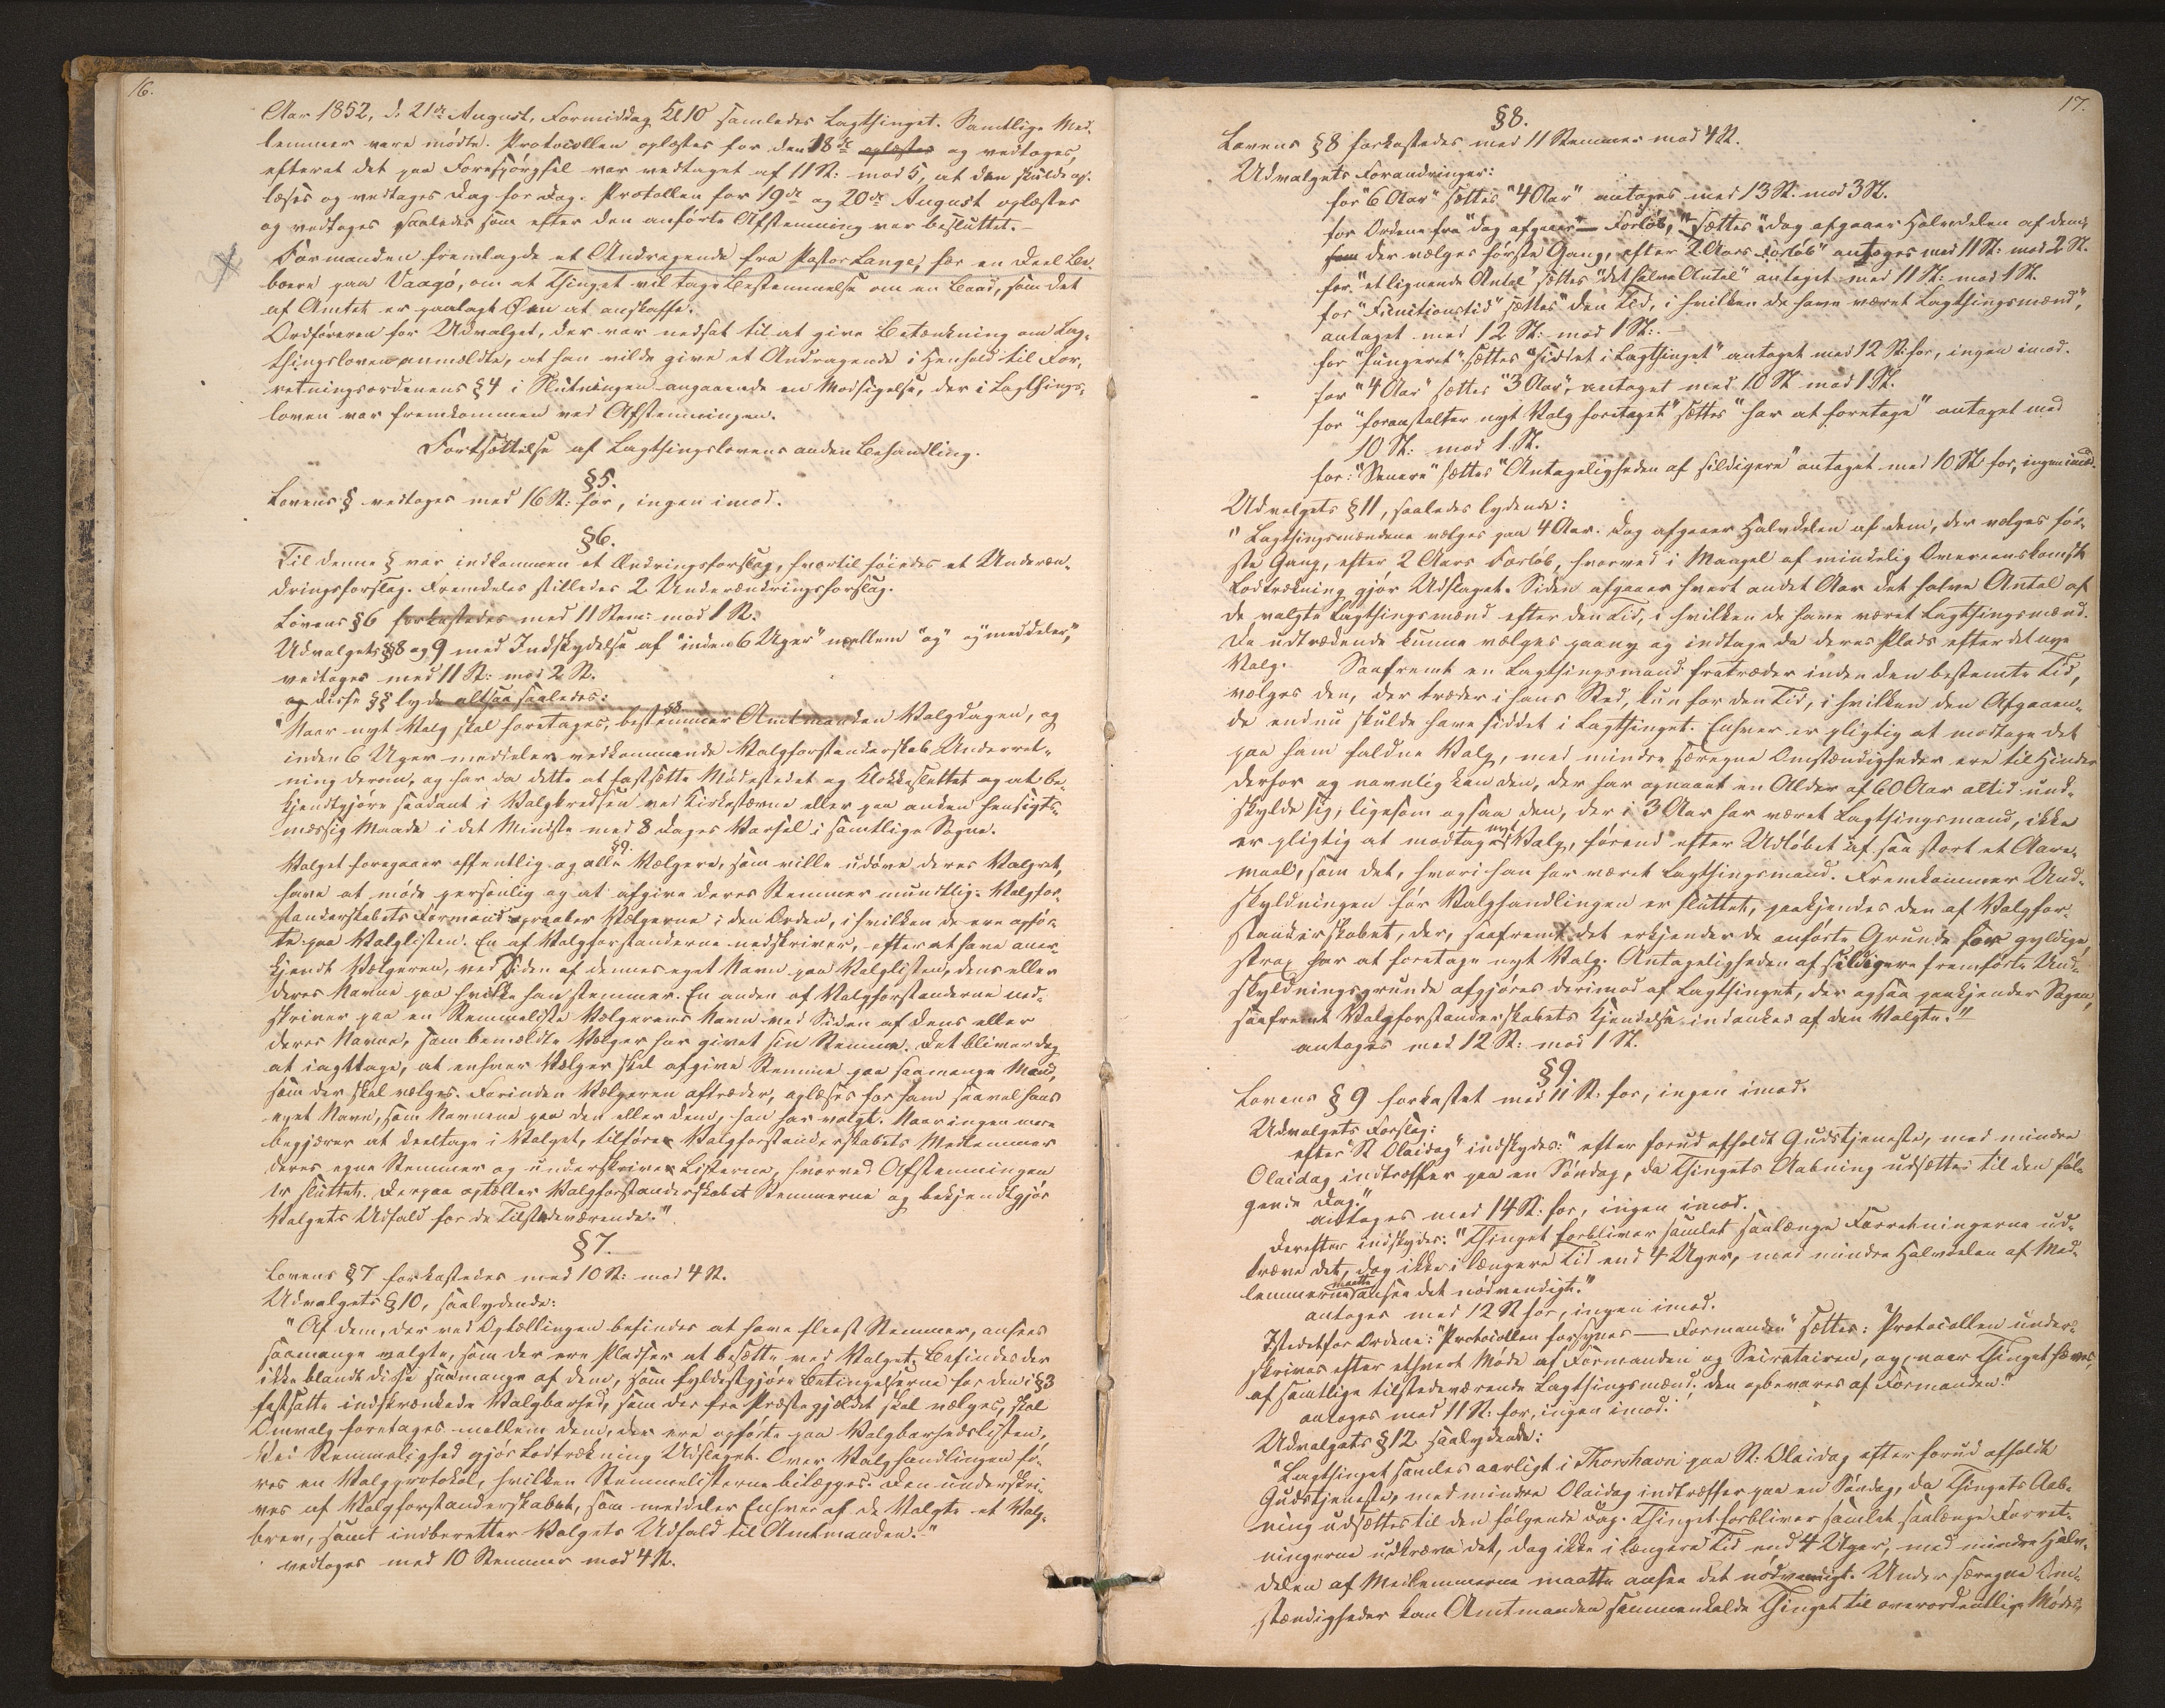 16.
Aar 1852, d. 21de August, Formiddag Kl 10 samledes Lagthinget. Samtlige Med-
lemmer vare mødte. Protocollen oplæstes for den 18de oplæstes og vedtoges,
efterat det paa Forespørgsel var vedtaget af 11 St: mod 5, at den skulde op-
læses og vedtages Dag for Dag. Protocollen for 19de og 20de August oplæstes
og vedtoges saaledes som efter den anførte Afstemning var besluttet.-
Formanden fremlagde et Andragende fra Pastor Lange, for en Deel Be-
boere paa Vaagø, om at Thinget vil tage Bestemmelse om en Baad, som det
af Amtet er paalagt Øen at anskaffe.
Ordføreren for Udvalget, der var nedsat til at give Betænkning om Lag-
thingsloven anmeldte, at han vilde give et Andragende i Henhold til For-
retningsordenens §4 i Slutningen angaaende en Modsigelse, der i Lagthings-
loven var fremkommen ved Afstemningen.
Fortsættelse af Lagthingslovens anden Behandling.
§5.
Lovens § vedtoges med 16 St: for, ingen imod.
§6.
Til denne § var indkommen et Ændringsforslag, hvortil føiedes et Underæn-
dringsforslag. Fremdeles stilledes 2 Underændringsforslag.
Lovens §6 forkastedes med 11 Stem: mod 1 St.
Udvalgets §§8 og 9 med Indskydelse af "inden 6 Uger" mellem "og" og "meddeler",
vedtoges med 11 St: mod 2 St.
og disse §§ lyde altsaa saaledes:
§8.
"Naar nyt Valg skal foretages, bestemmer Amtmanden Valgdagen, og
inden 6 Uger meddeler vedkommende Valgforstanderskab Underret-
ning derom, og har da dette at fastsætte Mødestedet og Klokkeslettet og at be-
kjendtgjøre saadant i Valgkredsen ved Kirkestævne eller paa anden hensigts-
mæssig Maade i det Mindste med 8 Dages Varsel i samtlige Sogne.
§9.
Valget foregaaer offentlig og alle Vælgere, som ville udøve deres Valgret,
have at møde personlig og at afgive deres Stemmer mundtlig. Valgfor-
standerskabets Formand opraaber Vælgerne i den Orden, i hvilken de ere opfør-
te paa Valglisten. En af Valgforstanderne nedskriver, efter at have aner-
kjendt Vælgeren, ved Siden af dennes eget Navn paa Valglisten, dens eller
deres Navne paa hvilke han stemmer. En anden af Valgforstanderne ned-
skriver paa en Stemmeliste Vælgerens Navn ved Siden af dens eller
deres Navne, som bemeldte Vælger har givet sin Stemme. Det bliver dog
at iagttage, at enhver Vælger skal afgive Stemme paa saamange Mænd,
som der skal vælges. Forinden Vælgeren aftræder, oplæses for ham saavel hans
eget Navn, som Navnene paa den eller dem, han har valgt. Naar ingen mere
begjærer at deeltage i Valget, tilføre Valgforstanderskabets Medlemmer
deres egne Stemmer og underskrive Listerne, hvorved Afstemningen
er sluttet. Derpaa optæller Valgforstanderskabet Stemmerne og bekjendtgjør
Valgets Udfald for de Tilstedeværende."
§7.
Lovens §7 forkastedes med 10 St: mod 4 St.
Udvalgets §10, saalydende:
"Af dem, der ved Optællingen befindes at have fleest Stemmer, ansees
saamange valgte, som der ere Pladser at besætte ved Valget. Befindes der
ikke blandt disse saamange af dem, som fyldestgjøre Betingelserne for den i §3
fastsatte indskrænkede Valgbarhed, som der fra Præstegjældet skal vælges, skal
Omvalg foretages mellem dem, der ere opførte paa Valgbarhedslisten.
Ved Stemmelighed gjør Lodtrækning Udslaget. Over Valghandlingen fø-
res en Valgprotokol, hvilken Stemmelisterne bilægges. Den underskri-
ves af Valgforstanderskabet, som meddeler Enhver af de Valgte et Valg-
brev, samt indberetter Valgets Udfald til Amtmanden."
vedtoges med 10 Stemmer mod 4 St.
17.
§8.
Lovens §8 forkastedes med 11 Stemmer mod 4 St.
Udvalgets Forandringer:
for "6 Aar" sættes "4 Aar" antoges med 13 St. mod 3 St.
for Ordene fra "dog afgaaer — Forløb," sættes "dog afgaaer Halvdelen af dem,
som der vælges første Gang, efter 2 Aars Forløb" antoges med 11 St: mod 2 St.
for "et lignende Antal" sættes "det halve Antal" antaget med 11 St: mod 1 St.
for "Functionstid" sættes "den Tid, i hvilken de have været Lagthingsmænd",
antaget med 12 St: mod 1 St:.—
for "fungeret" sættes "siddet i Lagthinget" antaget med 12 St: for, ingen imod.
for "4 Aar" sættes "3 Aar", antaget med 10 St mod 1 St.
for "foranstalter nyt Valg foretaget" sættes "har at foretage" antaget med
10 St: mod 1 St.
for: "Senere" sættes "Antageligheden af sildigere" antaget med 10 St for, ingen imod.
Udvalgets §11, saaledes lydende:
"Lagthingsmændene vælges paa 4 Aar. Dog afgaaer Halvdelen af dem, der vælges før-
ste Gang, efter 2 Aars Forløb, hvorved i Mangel af mindelig Overeenskomst
Lodtrækning gjør Udslaget. Siden afgaaer hvert andet Aar det halve Antal af
de valgte Lagthingsmænd efter den Tid, i hvilken de have været Lagthingsmænd.
De udtrædende kunne vælges paany og indtage da deres Plads efter det nye
Valg. Saafremt en Lagthingsmand fratræder inden den bestemte Tid,
vælges den, der træder i hans Sted, kun for den Tid, i hvilken den Afgaaen-
de endnu skulde have siddet i Lagthinget. Enhver er pligtig at modtage det
paa ham faldne Valg, med mindre særegne Omstændigheder ere til Hinder
derfor og navnlig kan den, der har opnaaet en Alder af 60 Aar altid und-
skylde sig, ligesom ogsaa den, der i 3 Aar har været Lagthingsmand, ikke
er pligtig at modtage nyt Valg, førend efter Udløbet af saa stort et Aare-
maal, som det, hvori han har været Lagthingsmand. Fremkommer Und-
skyldningen før Valghandlingen er sluttet, paakjendes den af Valgfor-
standerskabet, der, saafremt det erkjender de anførte Grunde for gyldige,
strax har at foretage nyt Valg. Antageligheden af sildigere fremførte Und-
skyldningsgrunde afgjøres derimod af Lagthinget, der ogsaa paakjender Sagen,
saafremt Valgforstanderskabets Kjendelse indankes af den Valgte."
antoges med 12 St: mod 1 St.
§9.
Lovens §9 forkastet med 11 St. for, ingen imod.
Udvalgets Forslag:
efter "St Olaidag" indskydes: "efter forud afholdt Gudstjeneste, med mindre
Olaidag indtræffer paa en Søndag, da Thingets Aabning udsættes til den føl-
gende Dag."
antoges med 14 St. for, ingen imod.
Derefter indskydes: "Thinget forbliver samlet saalænge Forretningerne ud-
kræve det, dog ikke i længere Tid end 4 Uger, med mindre Halvdelen af Med-
lemmerne maatte ansee det nødvendigt."
antoges med 12 St for, ingen imod.
Istedetfor Ordene: "Protocollen forsynes — Formanden" sættes: Protocollen under-
skrives efter ethvert Møde af Formanden og Secretairen, og, naar Thinget hæves,
af samtlige tilstedeværende Lagthingsmænd; den opbevares af Formanden."
antoges med 11 St. for, ingen imod.
Udvalgets §12 saalydende:
"Lagthinget samles aarligt i Thorshavn paa St: Olaidag efter forud afholdt
Gudstjeneste, med mindre Olaidag indtræffer paa en Søndag, da Thingets Aab-
ning udsættes til den følgende Dag. Thinget forbliver samlet saalænge Forret-
ningerne udkræve det, dog ikke i længere Tid end 4 Uger, med mindre Halv-
delen af Medlemmerne maatte ansee det nødvendigt. Under særegne Om-
stændigheder kan Amtmanden sammenkalde Thinget til overordentlige Møder,